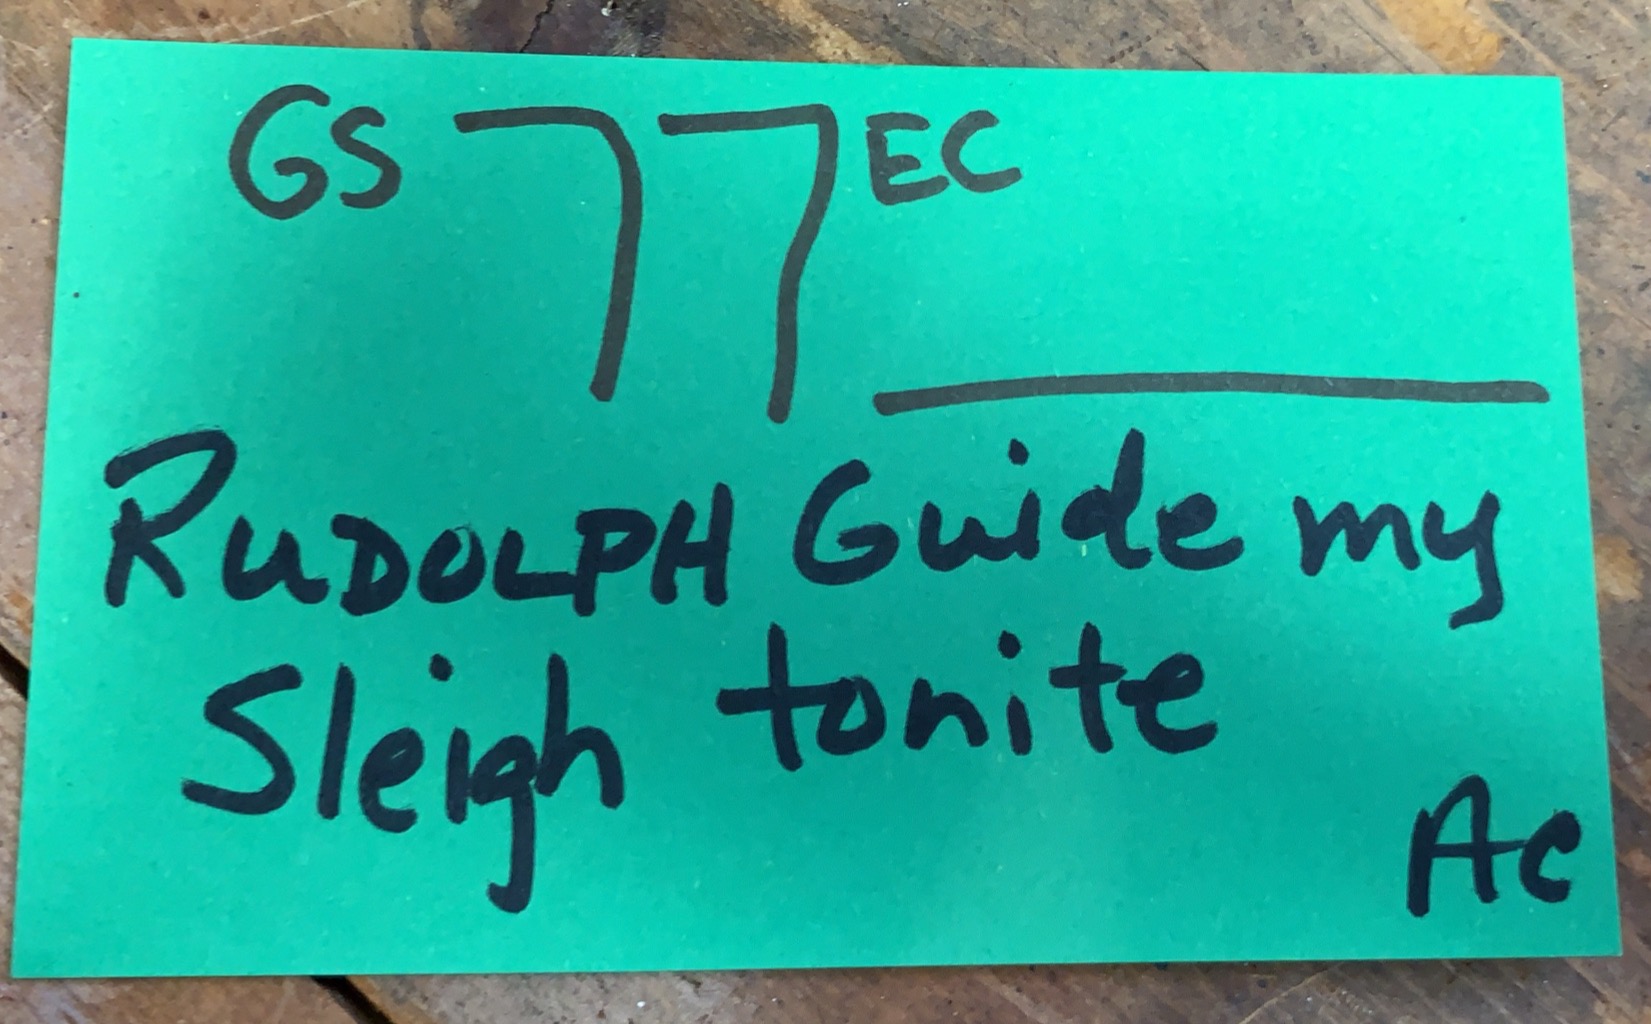 GS 77 EC
RUDOLPH Guide my
Sleigh tonite
Ac